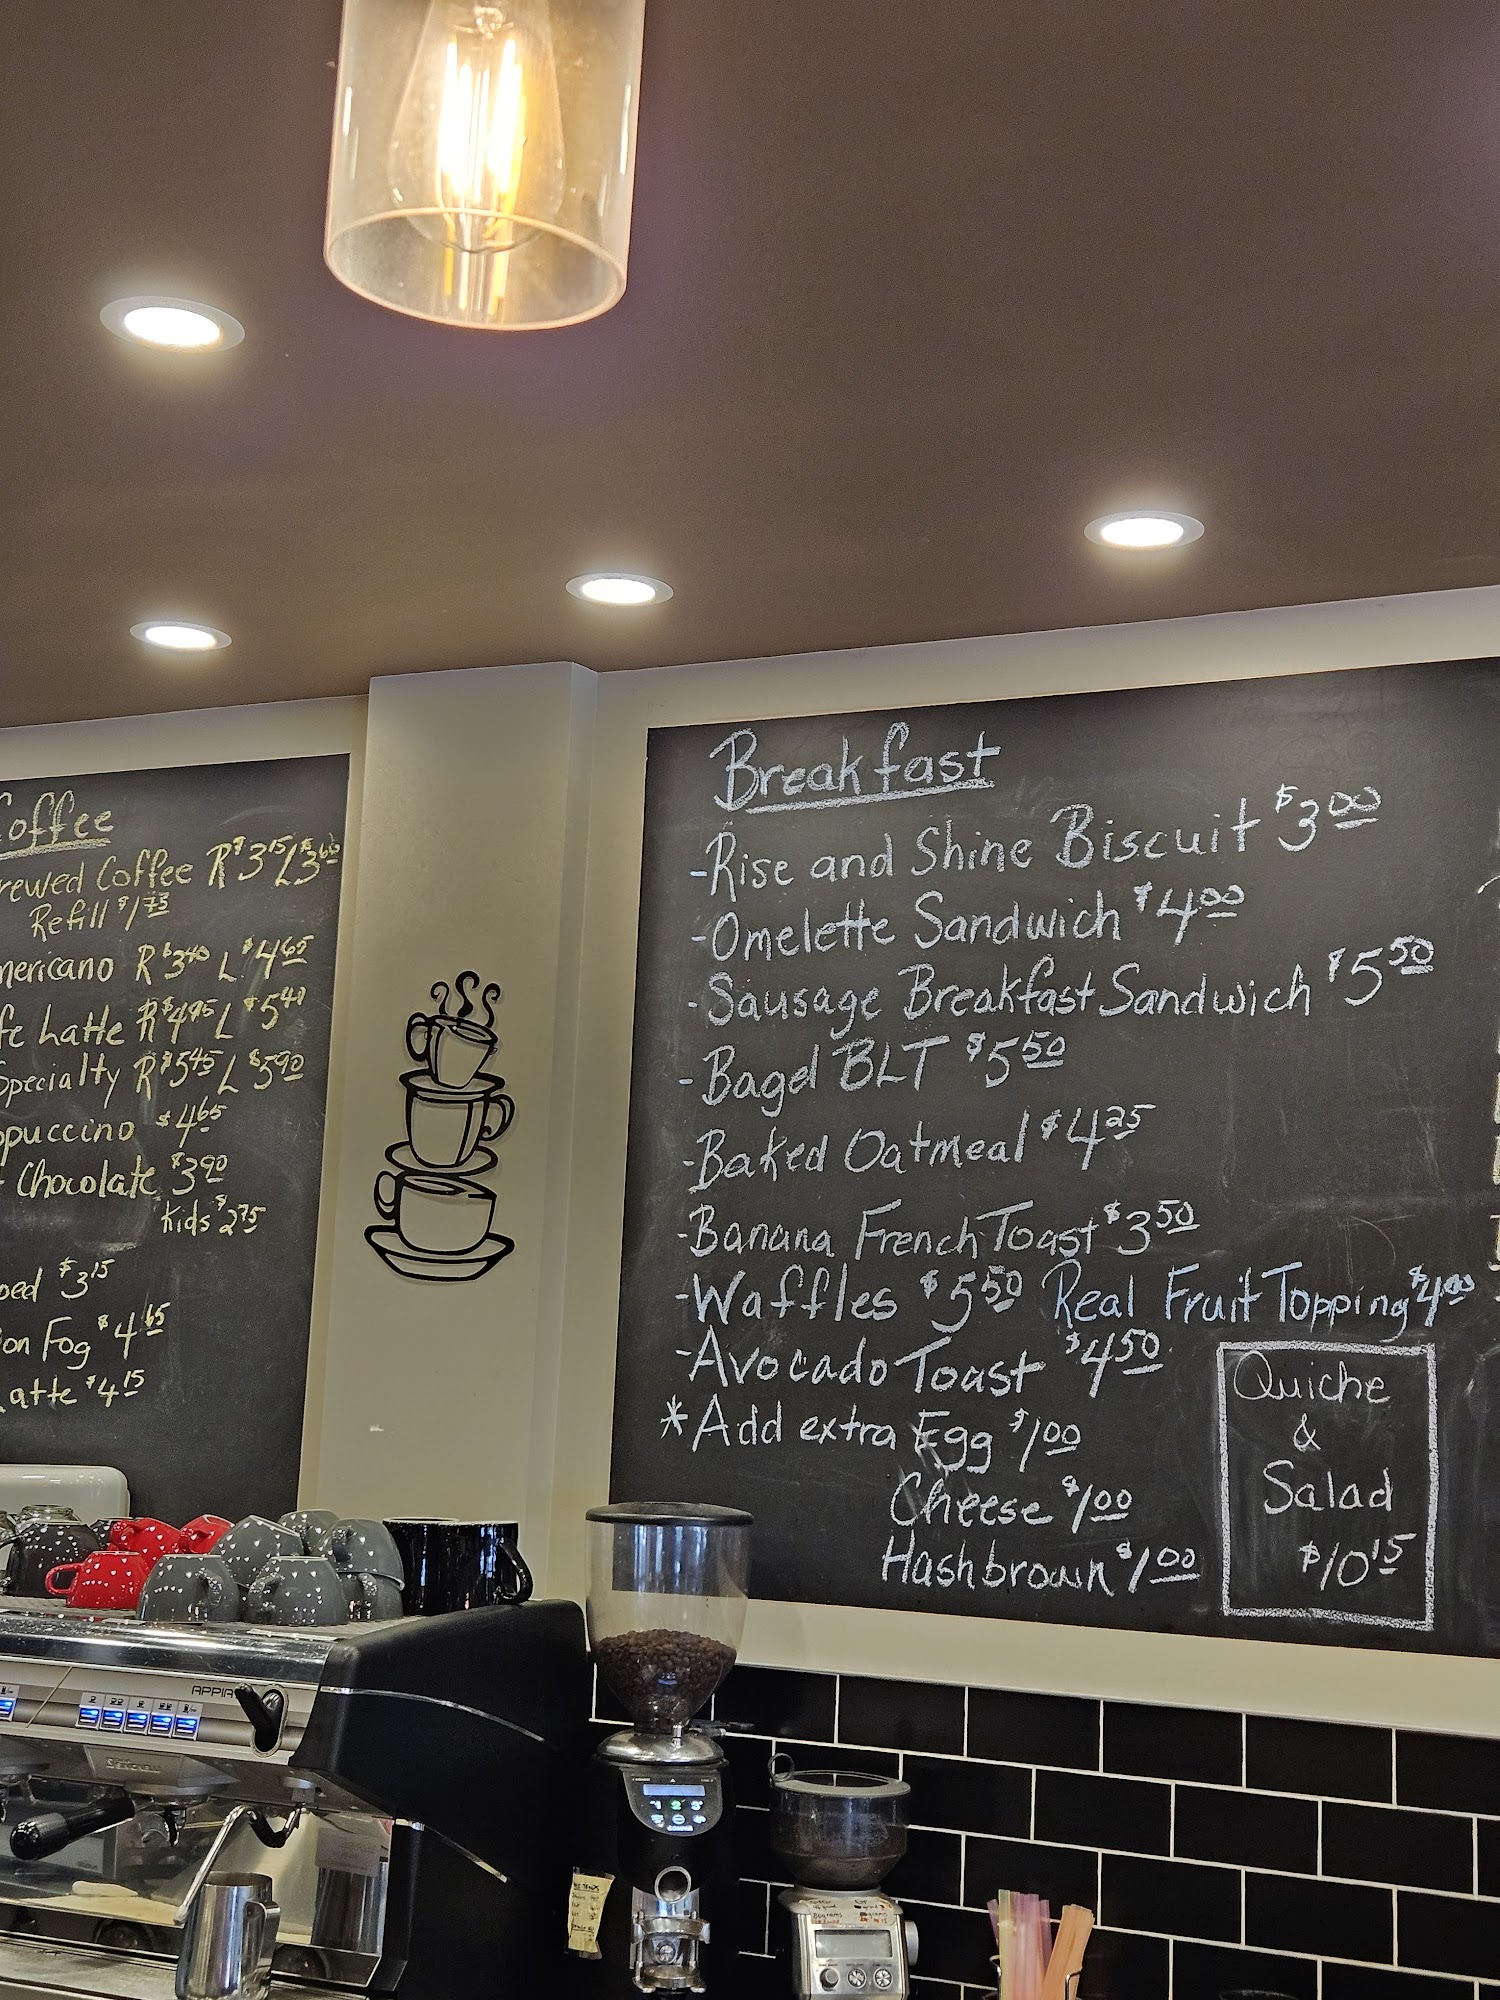 Coffee
rewed Coffee R $3.15 L $3.60
Refill $1.75
mericano R $3.40 L $4.65
fe Latte R $4.95 L $5.40
Specialty R $5.45 L $5.90
ppuccino $4.65
Chocolate $3.90
Kids $2.75
$3.15
on Fog $4.65
Latte $4.15
Breakfast
-Rise and Shine Biscuit $3.00
-Omelette Sandwich $4.00
-Sausage Breakfast Sandwich $5.50
-Bagel BLT $5.50
-Baked Oatmeal $4.25
-Banana French Toast $3.50
-Waffles $5.50 Real Fruit Topping $4.00
-Avocado Toast $4.50
*Add extra Egg $1.00
Cheese $1.00
Hashbrown $1.00
Quiche
&
Salad
$10.15
APPIA